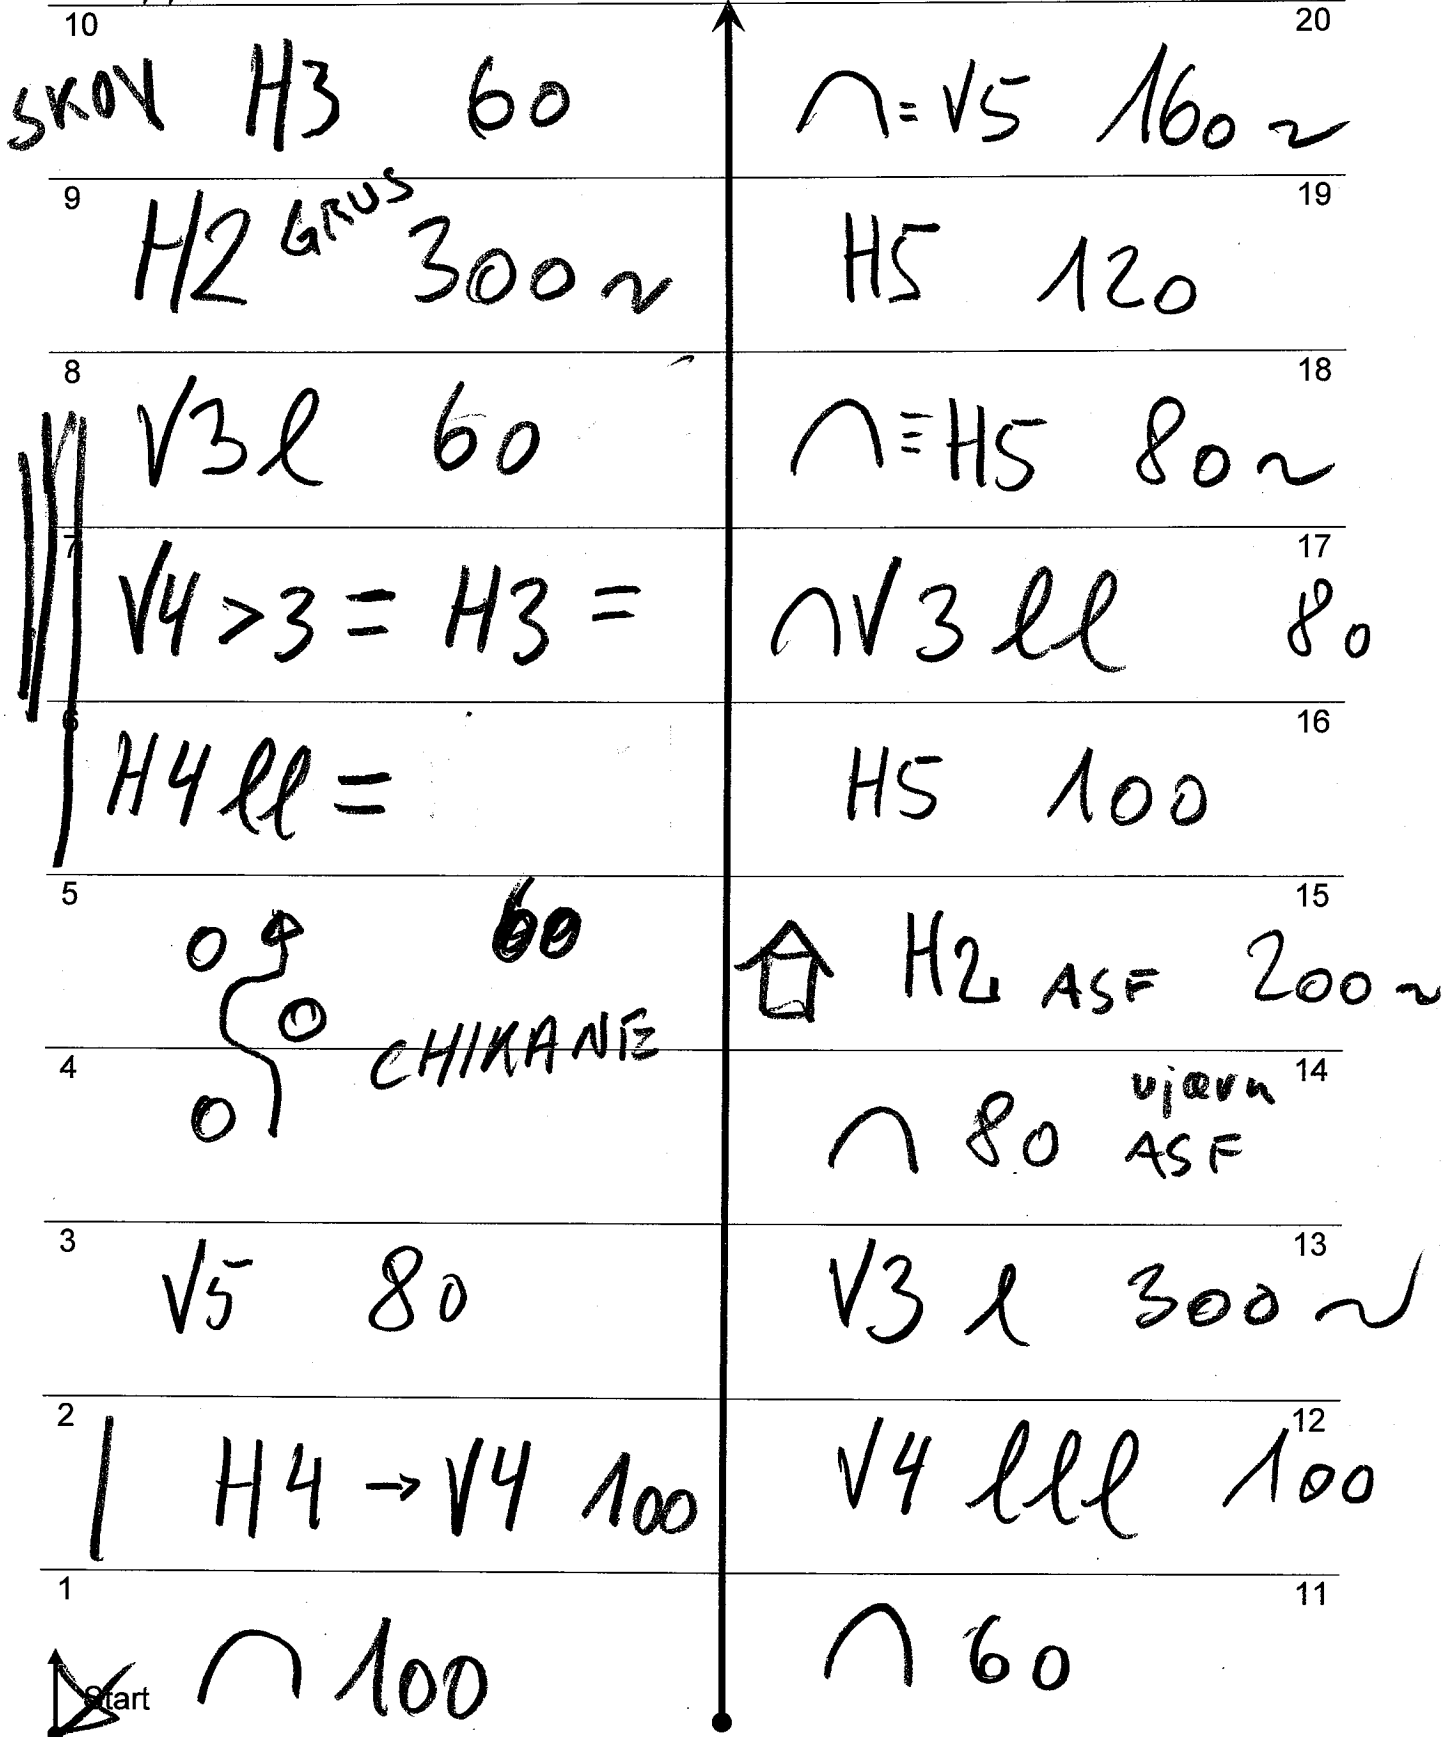 10
SKOV H3 60
9
H2 GRUS 300 ~
8
V3 l 60
7
V4 > 3 = H3 =
6
H4 ll =
5
60
CHIKANE
4
3
V5 80
2
| H4 → V4 100
1
Start
∩ 100
20
∩ = V5 160 ~
19
H5 120
18
∩ ≡ H5 80 ~
17
∩ V3 ll 80
16
H5 100
15
H2 ASF 200 ~
14
∩ 80 ujævn
ASF
13
V3 l 300 ~
12
V4 lll 100
11
∩ 60